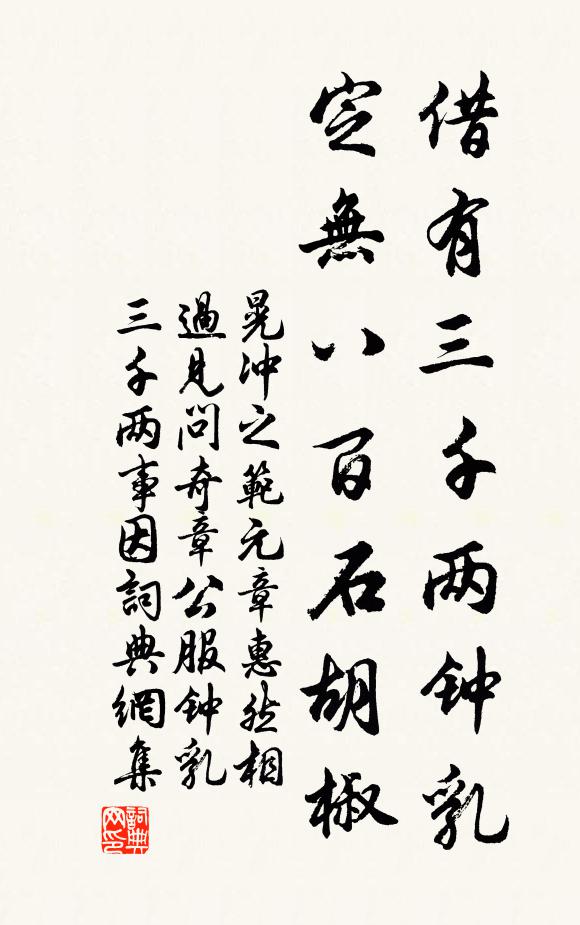 借有三千两钟乳
定無八百石胡椒
晃冲之範元章惠然相
過見問奇章公服钟乳
三千两事因詞典網集
詞典
网印